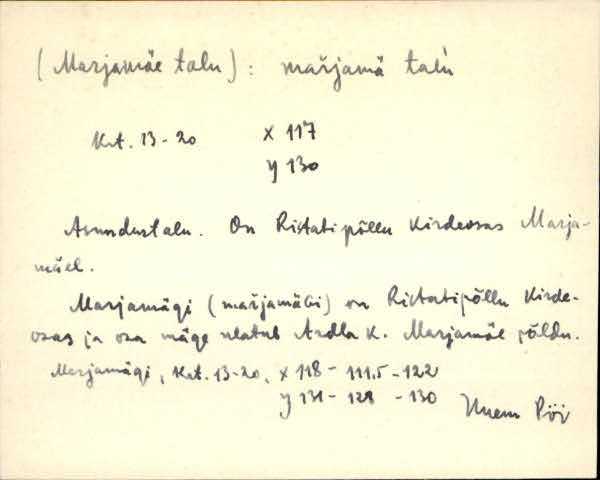 (Marjamäe talu): maŕjamä talu
Krt. 13-20 x 117
y 130
Asundustalu. On Ristatipõllu kirdeosas Marja-
mäel.
Marjamägi (maŕjamägi) on Ristatipõllu kirde-
osas ja osa mäge ulatub Ardla k. Marjamäe põldu.
Marjamägi, Krt. 13-20, x 118 - 111.5 - 122
y 131 - 128 - 130